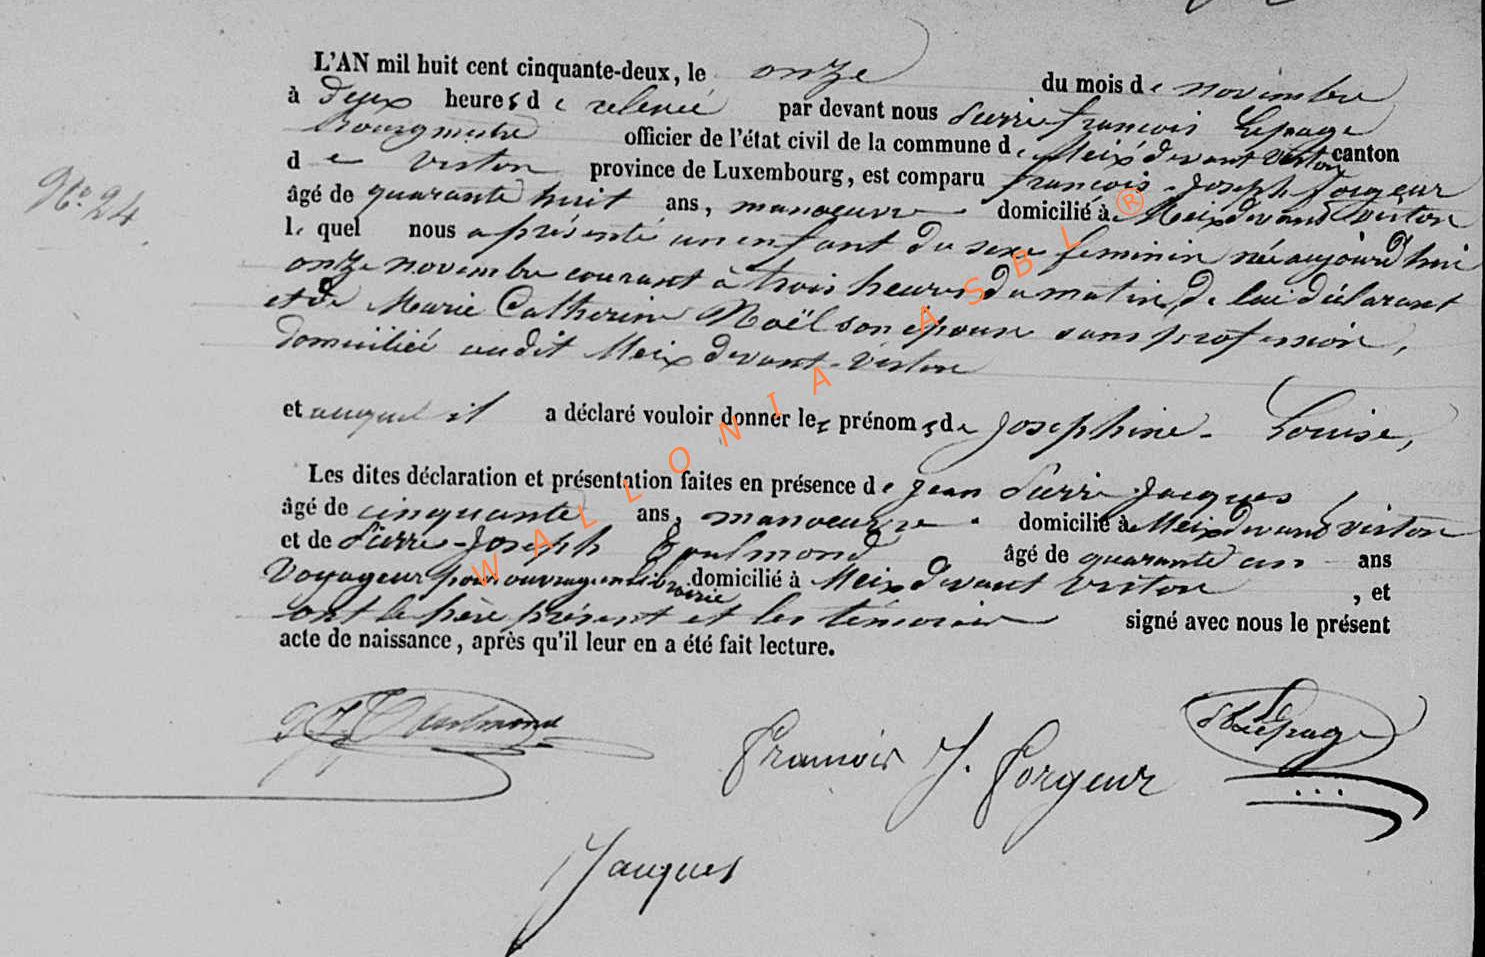 L'AN mil huit cent cinquante-deux, le onze du mois de novembre
à deux heures de relevée par devant nous Pierre françois Lepage
Bourgmestre officier de l'état civil de la commune de Meix devant Virton canton
de Virton province de Luxembourg, est comparu françois-Joseph Forgeur
âgé de quarante huit ans, manoeuvre domicilié à Meix devant Virton
le quel nous a présenté un enfant du sexe feminin née aujourd'hui
N° 24
onze novembre courant à trois heures du matin, de lui déclarant
et de Marie Catherine Noël son épouse sans profession,
domiciliée audit Meix devant-virton
et auquel il a déclaré vouloir donner les prénoms de Josephine-Louise,
Les dites déclaration et présentation faites en présence de Jean Pierre Jacques,
âgé de cinquante ans, manoeuvre domicilié à Meix devant Virton
et de Pierre-Joseph âgé de quarante un ans
Voyageur pour ouvrage en librairie domicilié à Meix devant Virton, et
ont le père présent et les témoins signé avec nous le présent
acte de naissance, après qu'il leur en a été fait lecture.
François J. Forgeur
Lepage
Jacques
WALLONIA ASBL ®